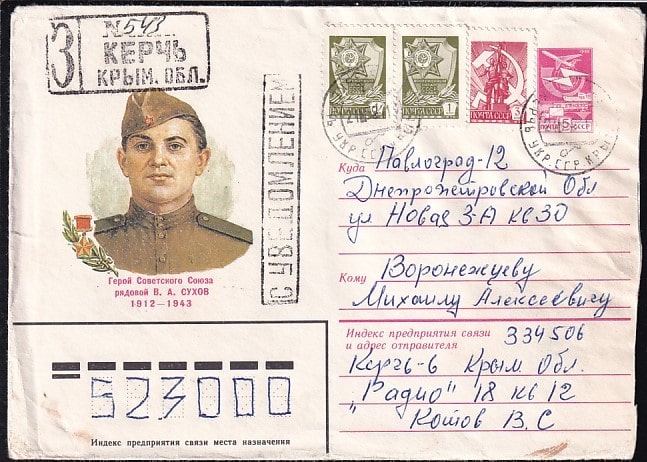 № 543
З КЕРЧЬ
КРЫМ. ОБЛ.
С УВЕДОМЛЕНИЕМ
ПОЧТА СССР 1
ПОЧТА СССР 1
ПОЧТА СССР
ПОЧТА 5 СССР
УКР ССР
УКР ССР КРЫМ
Куда Павлоград-12
Днепропетровской Обл
ул Новая 3-А кв 30
Кому Воронежцеву
Михаилу Алексеевичу
Индекс предприятия связи
и адрес отправителя 334506
Керчь-6 Крым. Обл.
"Радио" 18 кв 12
Котов В. С
Герой Советского Союза
рядовой В. А. СУХОВ
1912—1943
523000
Индекс предприятия связи места назначения